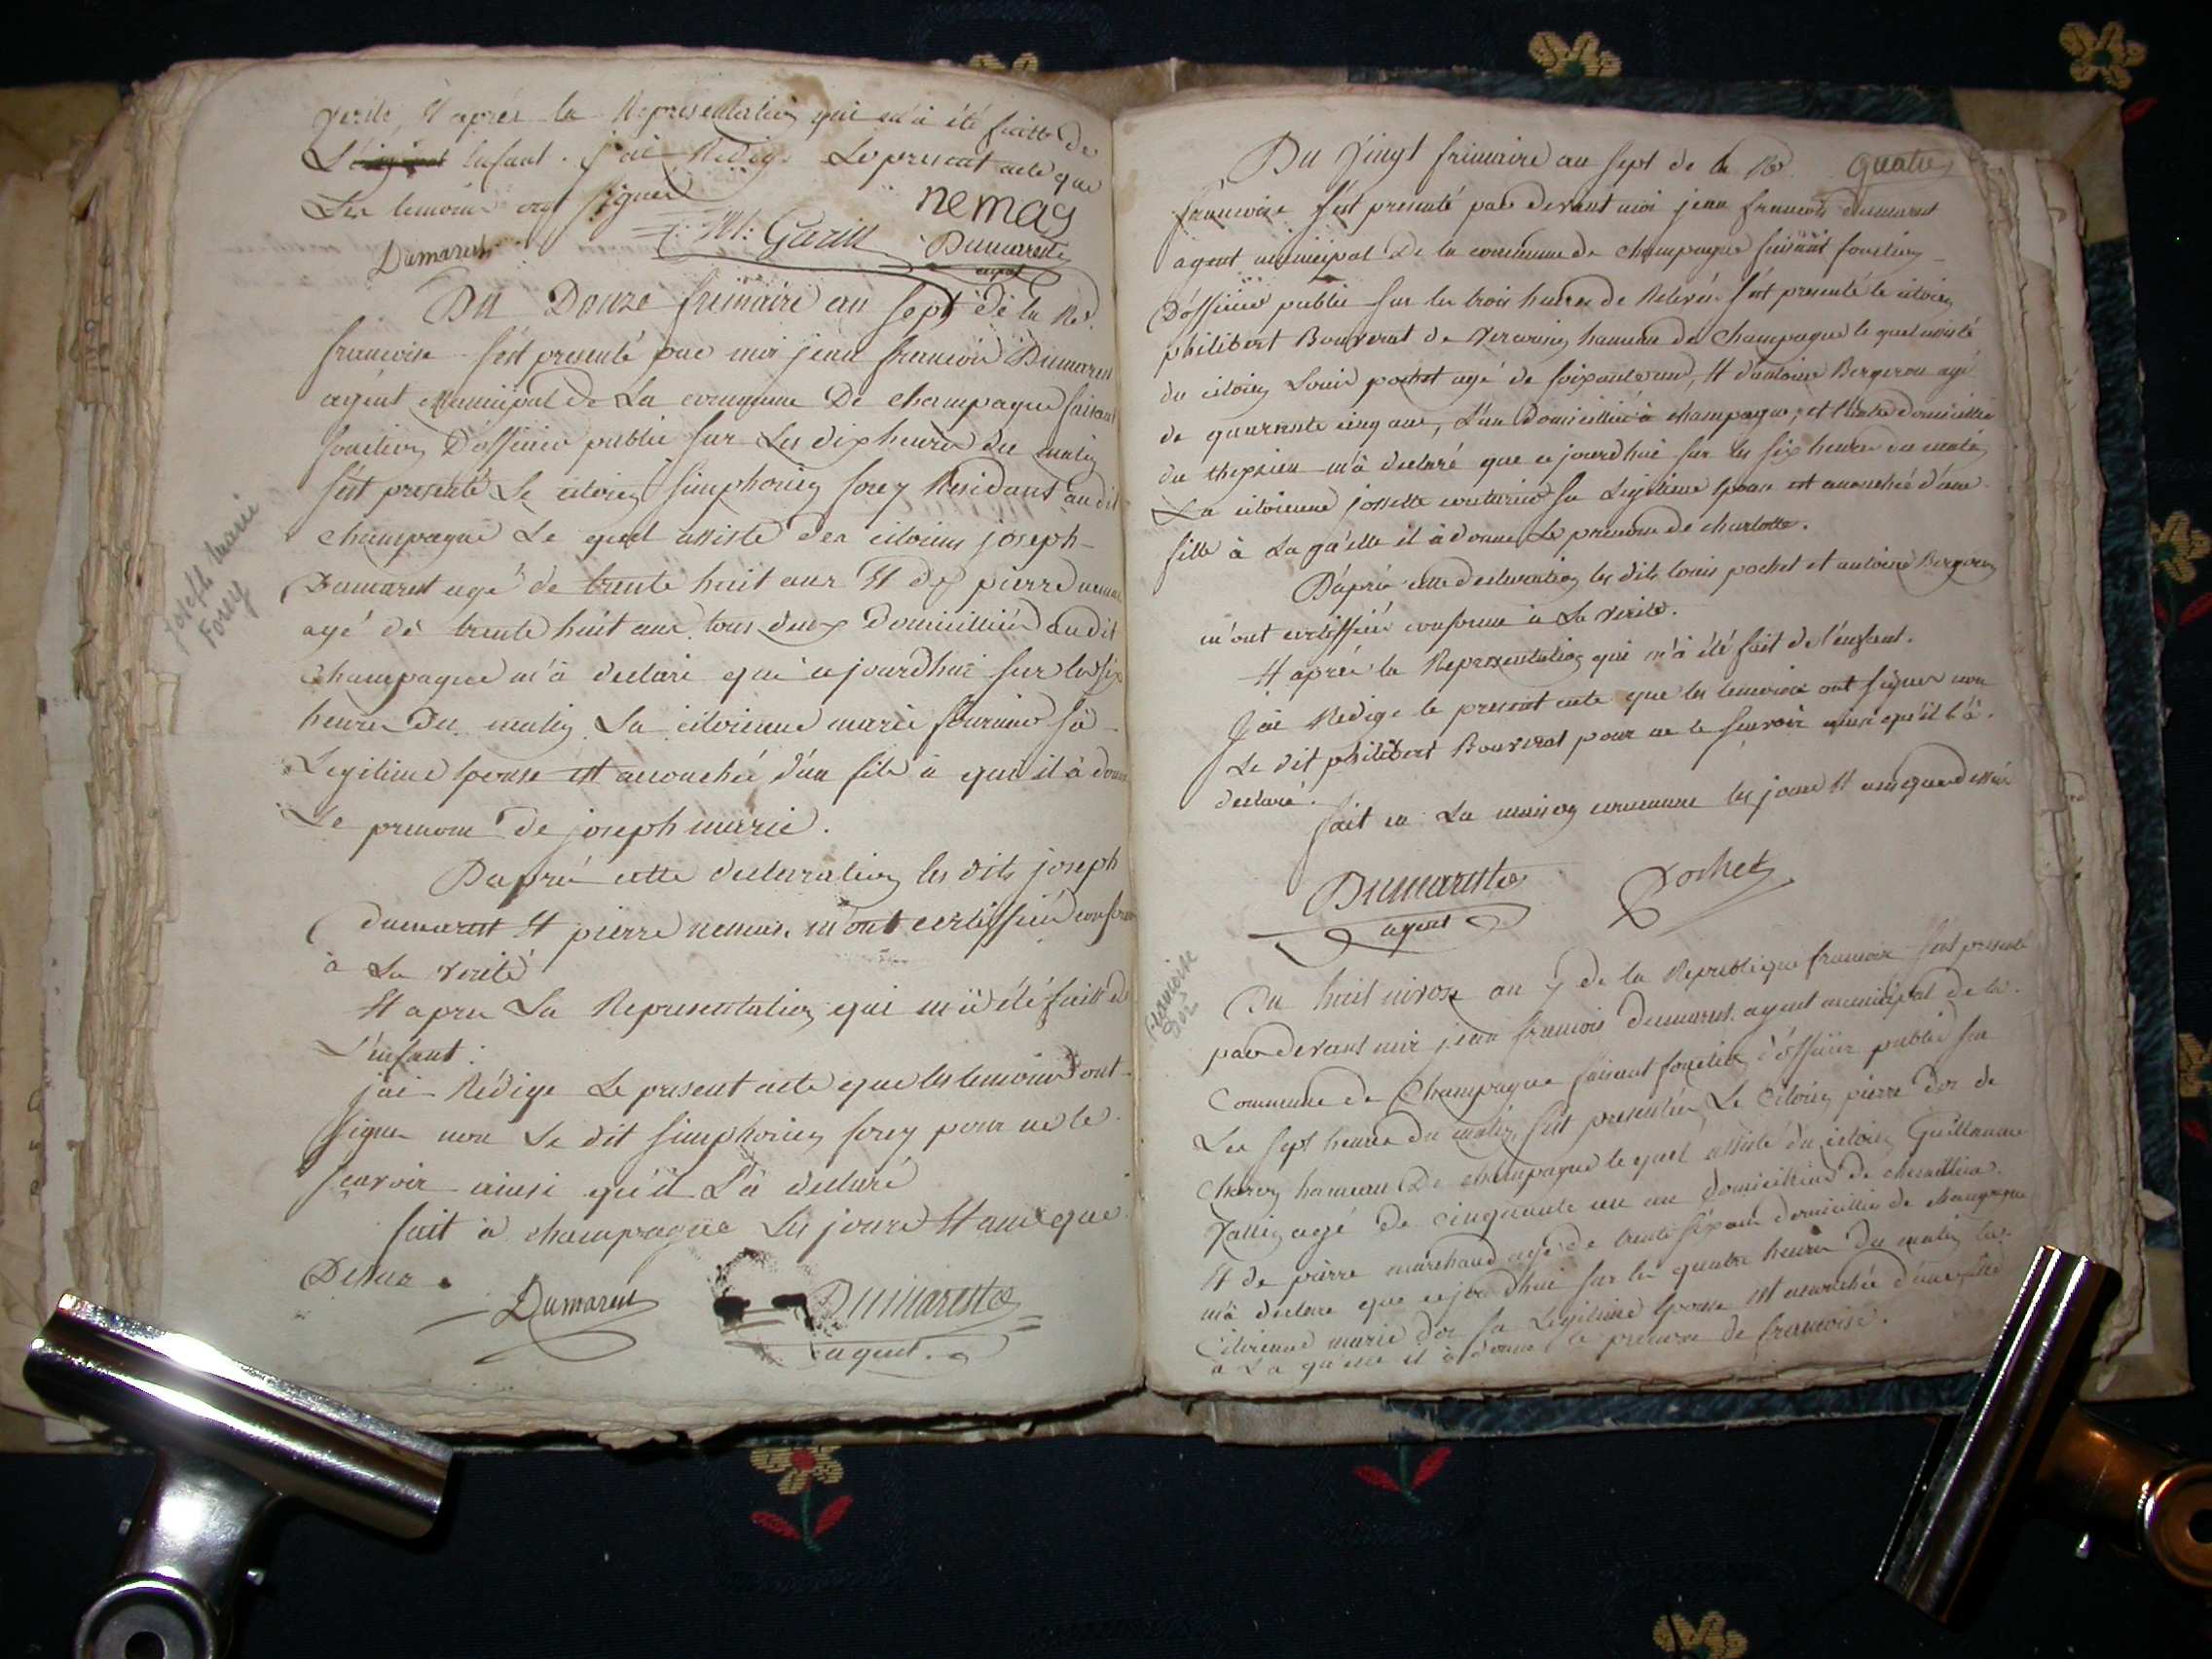 verité, Et aprés la Representation qui m'a été faitte de
L'enfant. j'ai Redige Le present acte que
Les temoins ont signer
nemaz
Dumarest
M: Garin
Dumarest
agent
Du Douze frimaire an sept de la Rep.
francoise s'est presenté par moi jean francois Dumarest
agent Municipal De La commune De champagne faisant
fonction D'officier public sur Les dix heures du matin
s'est presenté Le citoien simphorien forey Residant au dit
champagne Le quel assisté des citoiens joseph
Dumarest agé de trente huit ans Et de pierre nemaz
agé de trente huit ans tous deux Domicilliés au dit
champagne m'a declaré que ce jourdhui sur les six
heures Du matin La citoienne marie fournier sa
Legitime Epouse est accouchée d'un fils a qui il a donné
Le prenom de joseph marie.
joseph marie
Forey
Daprés cette declaration les dits joseph
dumarest Et pierre nemaz. m'ont certiffiée conforme
à La verité
Et apres La Representation qui m'a été faitte de
L'enfant.
j'ai Rédige Le present acte que les temoins ont
signer non Le dit simphorien forey pour ne le
scavoir ainsi qu'il L'a declaré
fait à champagne Les jours Et ans que
Dessus.
Dumarest
Dumarest
agent.
Du vingt frimaire an sept de la Rep. quatre
francoise s'est presenté par devant moi jean francois dumarest
agent municipal De la commune de champagne faisant fonction
D'officier public sur les trois heures de Relevée s'est presenté le citoien
philibert Bouverat de hameau de champagne le quel assisté
du citoien Louis pochet agé de soixante un, Et d'antoine Bergeron agé
de quarrente cinq ans, L'un Domicillié à champagne, et l'autre domicillié
du m'a declaré que ce jourdhui sur les six heures du matin
La citoienne josette couturier sa Legitime Epouse est accouchée d'une
fille à La quelle il à donné Le prenom de charlotte.
D'aprés cette declaration les dits Louis pochet et antoine Bergeron
m'ont certiffiée conforme à La verité.
Et aprés la Representation qui m'à été fait de l'enfant.
J'ai Redige le present acte que les temoins ont signer non
Le dit philibert Bouverat pour ne le scavoir ainsi qu'il l'a
declaré.
fait en La maison commune les jours Et ans que dessus
Dumarest
agent
Pochet
francoise
Dor
Du huit nivose an 7 de la Republique francoise s'est presenté
par devant moi jean francois dumarest. agent municipal de la
Commune de Champagne faisant fonction d'officier public sur
Les sept heures du matin, s'est presentée Le Citoien pierre dor de
hameau De champagne le quel assisté du citoien Guillaume
agé de cinquante un an domicillié de
Et de pierre marchand agé de trente six ans domicillie de champagne
m'a declare que ce jourdhui sur les quatre heures Du matin La
Citoienne marie dor sa Legitime Epouse est accouchée d'une fille
a La quelle il à donne le prenom de francoise.